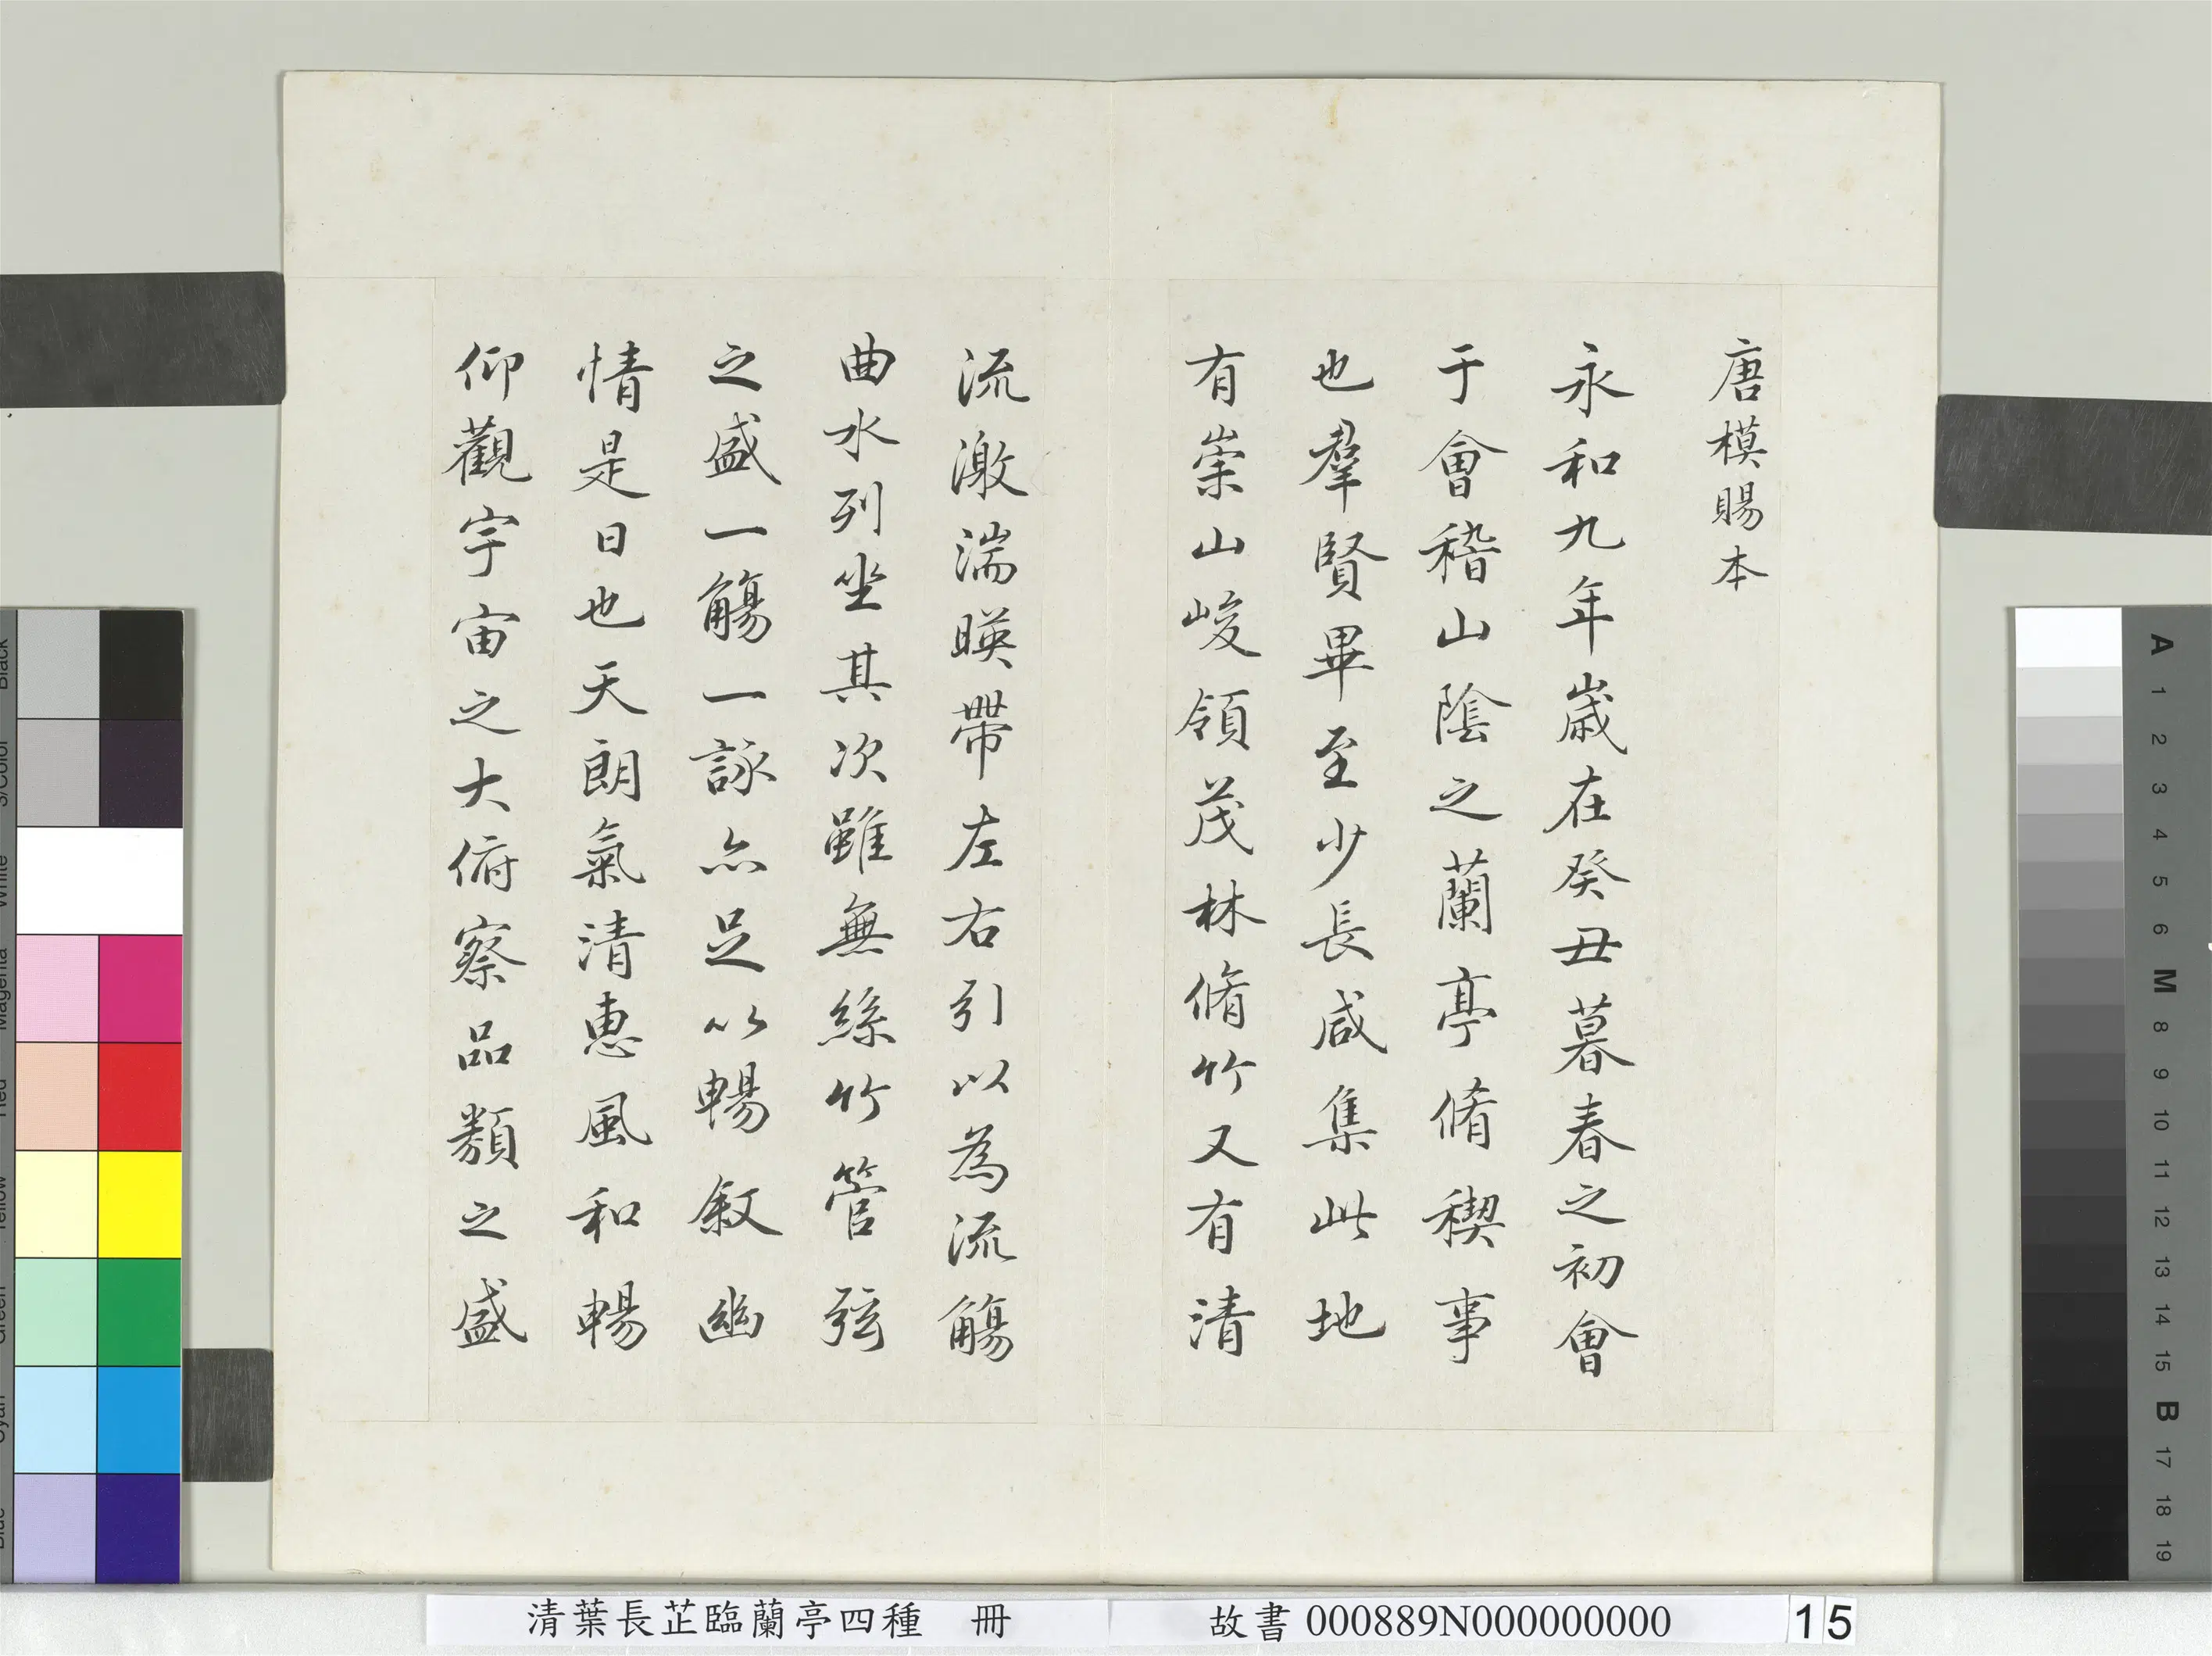 唐模賜本
永和九年歲在癸丑暮春之初會
于會稽山陰之蘭亭脩稧事
也羣賢畢至少長咸集此地
有崇山峻領茂林脩竹又有清
流激湍暎帶左右引以為流觴
曲水列坐其次雖無絲竹管弦
之盛一觴一詠亦足以暢敘幽
情是日也天朗氣清惠風和暢
仰觀宇宙之大俯察品類之盛
清葉長芷臨蘭亭四種 冊
故書 000889N000000000
15
A
1
2
3
4
5
6
M
8
9
10
11
12
13
14
15
B
17
18
19
Black
3/Color
White
Magenta
Red
Yellow
Green
Cyan
Blue